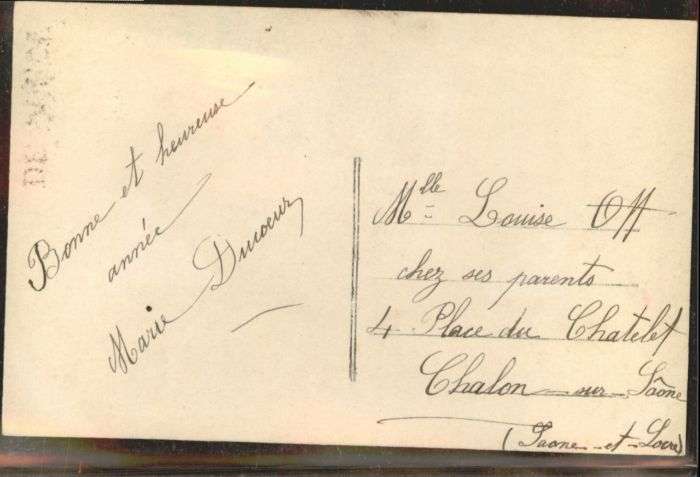 Bonne et heureuse
année
Marie Ducœur
Mlle Louise Off
chez ses parents
4 Place du Chatelet
Chalon-sur-Saône
(Saone-et-Loire)